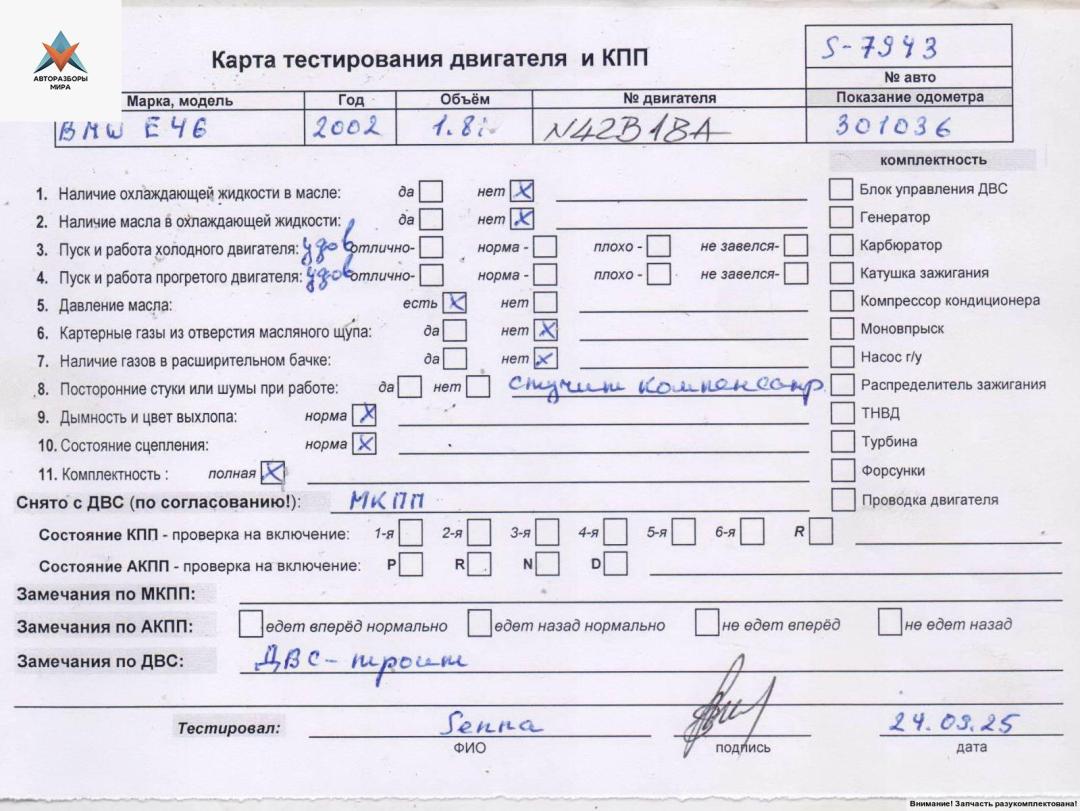 АВТОРАЗБОРЫ
МИРА
Карта тестирования двигателя и КПП
S-7943
№ авто
Марка, модель Год Объём № двигателя Показание одометра
BMW E46 2002 1.8i N42B18A 301036
комплектность
1. Наличие охлаждающей жидкости в масле: да нет X Блок управления ДВС
2. Наличие масла в охлаждающей жидкости: да нет X Генератор
3. Пуск и работа холодного двигателя: удов отлично- норма - плохо - не завелся- Карбюратор
4. Пуск и работа прогретого двигателя: удов отлично- норма - плохо - не завелся- Катушка зажигания
5. Давление масла: есть X нет Компрессор кондиционера
6. Картерные газы из отверстия масляного щупа: да нет X Моновпрыск
7. Наличие газов в расширительном бачке: да нет X Насос г/у
8. Посторонние стуки или шумы при работе: да нет стучит компенсатр. Распределитель зажигания
9. Дымность и цвет выхлопа: норма X ТНВД
10. Состояние сцепления: норма X Турбина
11. Комплектность : полная X Форсунки
Снято с ДВС (по согласованию!): МКПП Проводка двигателя
Состояние КПП - проверка на включение: 1-я 2-я 3-я 4-я 5-я 6-я R
Состояние АКПП - проверка на включение: P R N D
Замечания по МКПП:
Замечания по АКПП: едет вперёд нормально едет назад нормально не едет вперёд не едет назад
Замечания по ДВС: ДВС- троит
Тестировал: 24.09.25
ФИО подпись дата
Внимание! Запчасть разукомплектована!